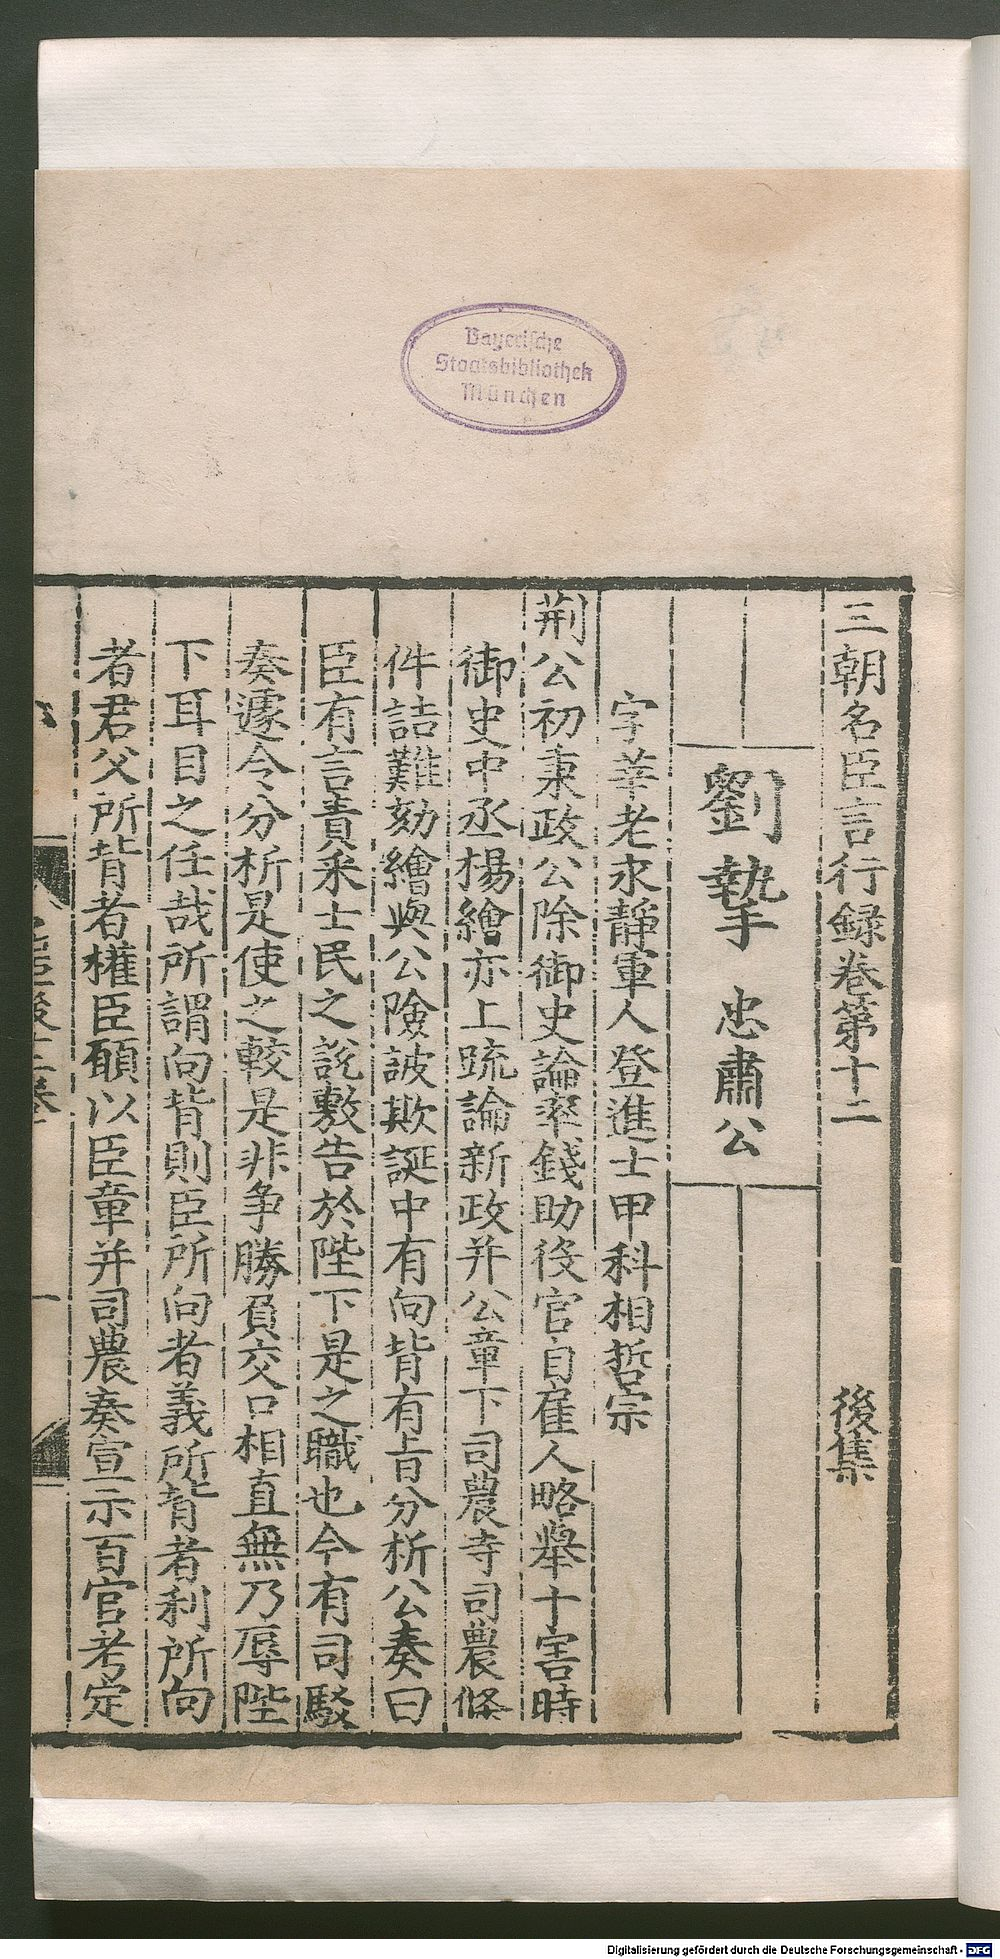 三朝名臣言行録卷第十二 後集
劉摯 忠肅公
字莘老永靜軍人登進士甲科相哲宗
荆公初秉政公除御史論率錢助役官自雇人略舉十害時
御史中丞楊繪亦上疏論新政并公章下司農寺司農條
件詰難劾繪與公險詖欺誕中有向背有旨分析公奏曰
臣有言責采士民之説敷告於陛下是之職也今有司駁
奏遽令分析是使之較是非争勝負交口相直無乃辱陛
下耳目之任哉所謂向背則臣所向者義所背者利所向
者君父所背者權臣願以臣章并司農奏宣示百官考定
Bayerische
Staatsbibliothek
München
Digitalisierung gefördert durch die Deutsche Forschungsgemeinschaft - DFG